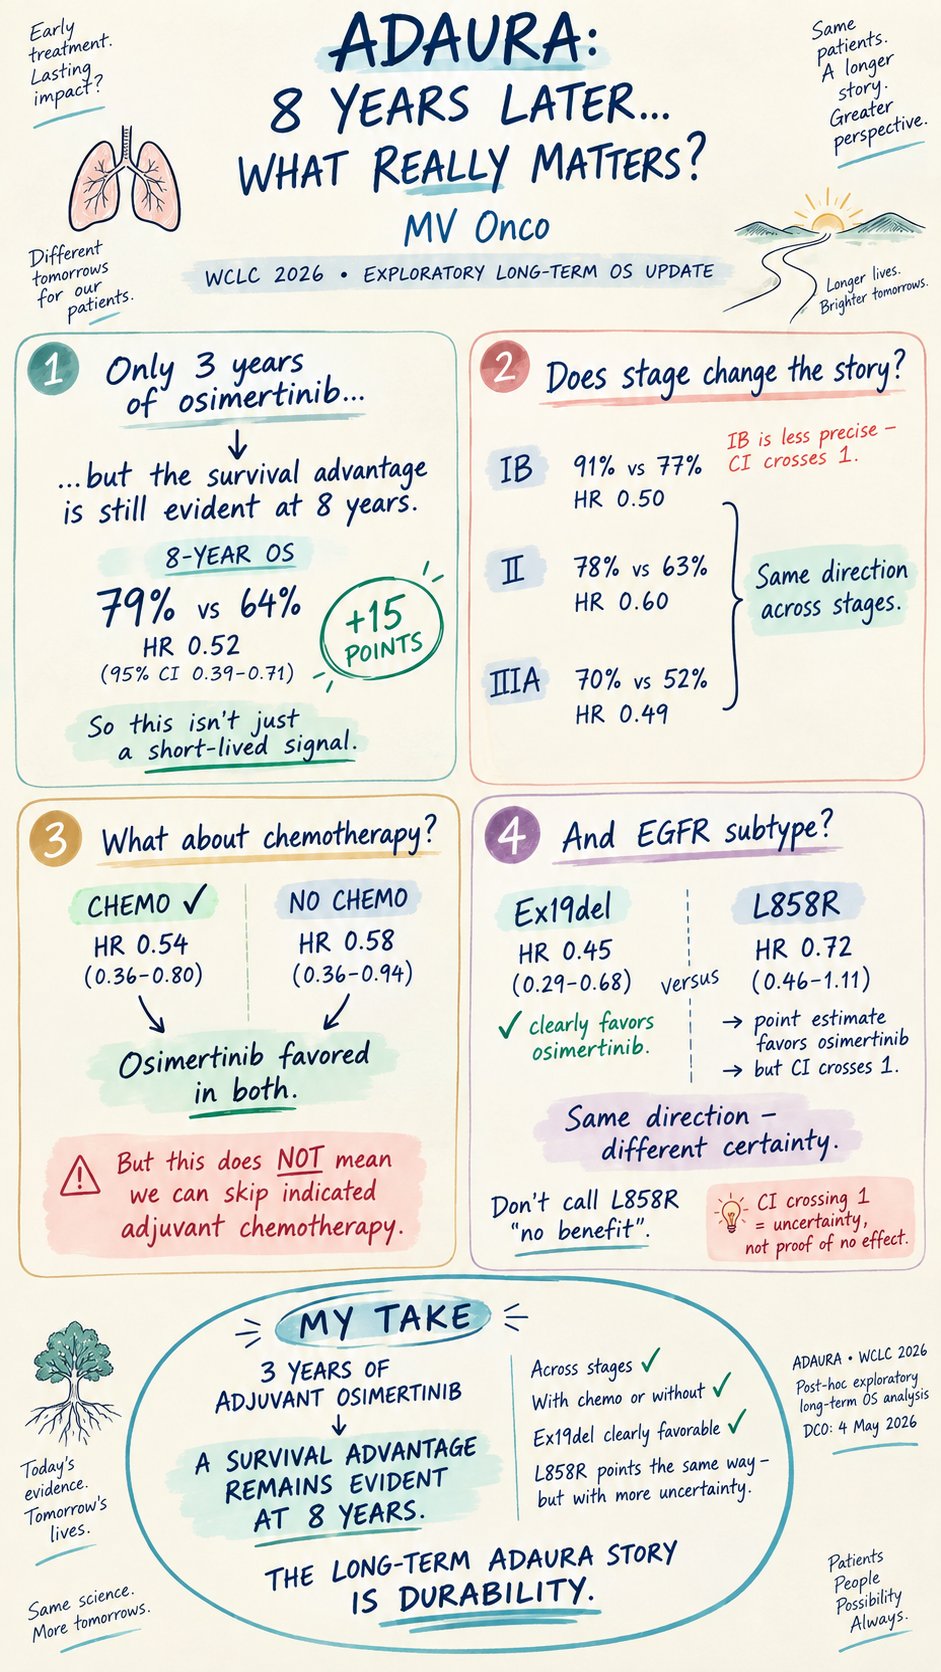 Early
treatment.
Lasting
impact?
ADAURA:
8 YEARS LATER...
WHAT REALLY MATTERS?
MV Onco
WCLC 2026 • EXPLORATORY LONG-TERM OS UPDATE
Same
patients.
A longer
story.
Greater
perspective.
Different
tomorrows
for our
patients.
Longer lives.
Brighter tomorrows.
1
Only 3 years
of osimertinib...
...but the survival advantage
is still evident at 8 years.
8-YEAR OS
79% vs 64%
HR 0.52
(95% CI 0.39-0.71)
+15
POINTS
So this isn't just
a short-lived signal.
2
Does stage change the story?
IB is less precise –
CI crosses 1.
IB
91% vs 77%
HR 0.50
II
78% vs 63%
HR 0.60
IIIA
70% vs 52%
HR 0.49
Same direction
across stages.
3
What about chemotherapy?
CHEMO ✓
HR 0.54
(0.36-0.80)
NO CHEMO
HR 0.58
(0.36-0.94)
Osimertinib favored
in both.
But this does NOT mean
we can skip indicated
adjuvant chemotherapy.
4
And EGFR subtype?
Ex19del
HR 0.45
(0.29-0.68)
✓ clearly favors
osimertinib.
versus
L858R
HR 0.72
(0.46-1.11)
→ point estimate
favors osimertinib
→ but CI crosses 1.
Same direction –
different certainty.
Don't call L858R
"no benefit".
CI crossing 1
= uncertainty,
not proof of no effect.
MY TAKE
3 YEARS OF
ADJUVANT OSIMERTINIB
A SURVIVAL ADVANTAGE
REMAINS EVIDENT
AT 8 YEARS.
Across stages ✓
With chemo or without ✓
Ex19del clearly favorable ✓
L858R points the same way –
but with more uncertainty.
THE LONG-TERM ADAURA STORY
IS DURABILITY.
ADAURA • WCLC 2026
Post-hoc exploratory
long-term OS analysis
DCO: 4 May 2026
Today's
evidence.
Tomorrow's
lives.
Same science.
More tomorrows.
Patients
People
Possibility
Always.